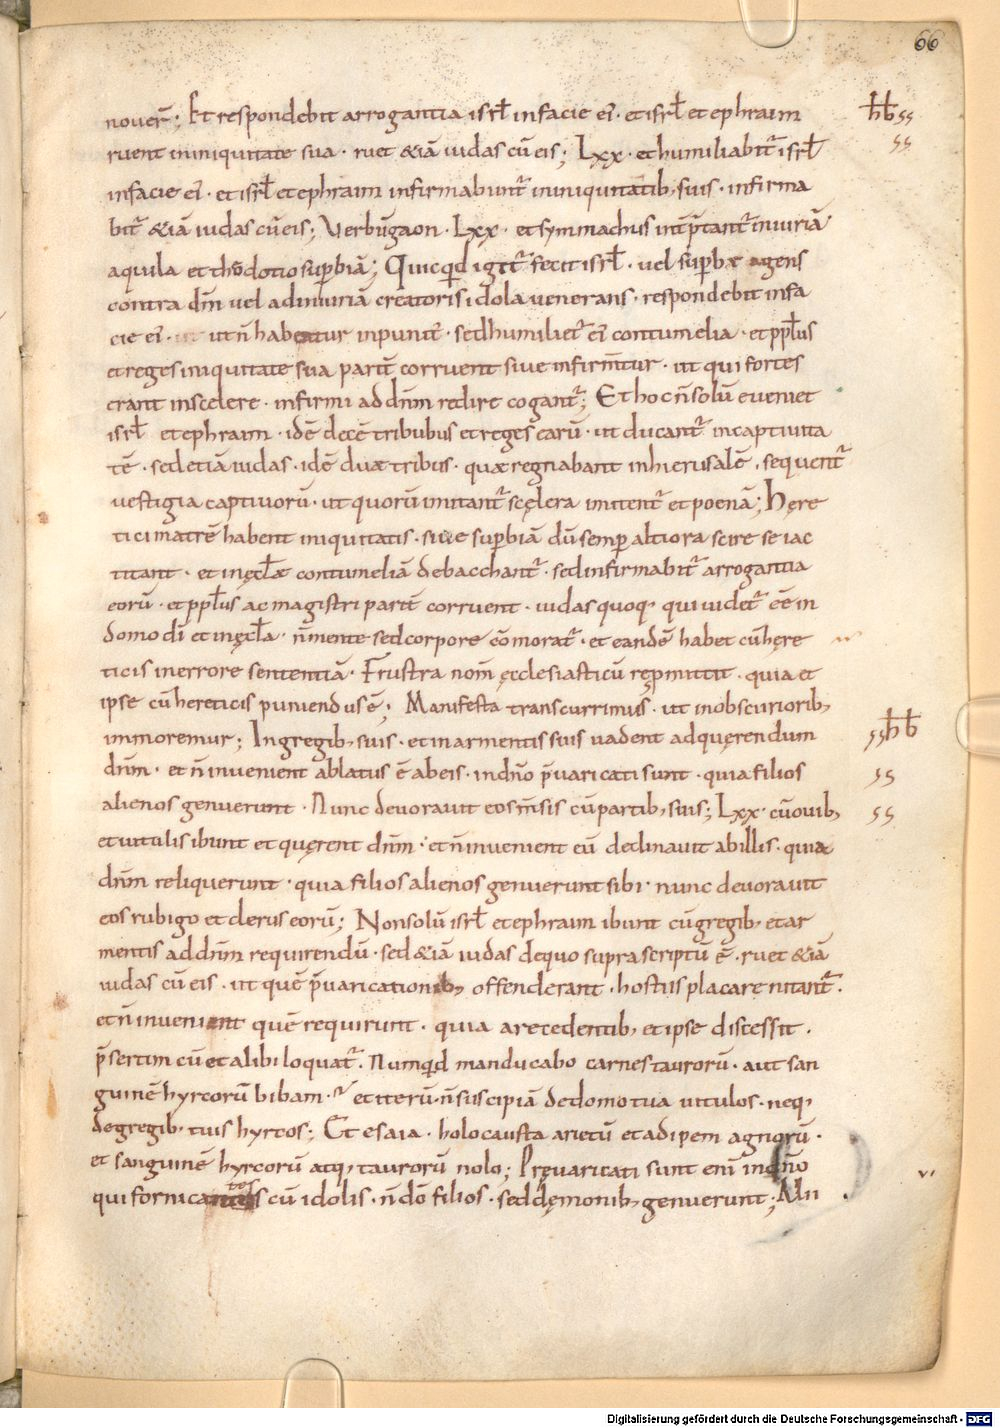 66
nouer̄; Et respondebit arrogantia isrł in facie ei᷒· et isrł et ephraim
ruent in iniquitate sua · ruet &iā iudas cū eis; Lxx · et humiliabit᷒ isrł
in facie ei᷒ · et isrł et ephraim infirmabunt᷒ in iniquitatib; suis · infirma
bit᷒ &iā iudas cū eis; Verbū gaon · Lxx · et symmachus int̄p̄tant᷒ iniuriā
aquila et theodotio sup̱biā; Quicqͥd igit᷒ fecit isrł · uel superbæ agens
contra dn̄m uel ad iniuriā creatoris idola uenerans · respondebit in fa
cie ei᷒ · ut n̄ habeatur inpunit᷒ · sed humiliet᷒ ei᷒ contumelia · et pp̄łus
et reges iniquitate sua parit̄ corruent siue infirm̄tur · ut qui fortes
erant in scelere · infirmi ad dn̄m redire cogant᷒; Et hoc n̄ solū eueniet
isrł et ephraim · idē decē tribubus et reges earū · ut ducant᷒ in captiuita
tē · sed etiā iudas · idē duæ tribus · quæ regnabant in hierusalē · sequent᷒
uestigia captiuorū · ut quorū imitant᷒ scęlera imitent᷒ et poenā; Hęre
tici matrē habent iniquitatis · siue sup̱biā dū semp̱ altiora scire se iac
titant · et in ęcl̄æ contumeliā debacchant᷒ · sed infirmabit᷒ arrogantia
eorū · et pp̄łus ac magistri parit̄ corruent · iudas quoq; qui uidet᷒ ēē in
domo dī et in ęcl̄a · n̄ mente sed corpore cōmorat᷒ · et eandē habet cū hęre
ticis in errore sententiā · Frustra nom̄ ęcclesiasticū repmittit · quia et
ipse cū hereticis puniendus ē; Manifesta transcurrimus · ut in obscuriorib;
immoremur; In gregib; suis · et in armentis suis uadent ad quęrendum
dn̄m · et n̄ inuenient ablatus ē ab eis · in dn̄o p̄uaricati sunt · quia filios
alienos genuerunt · Nunc deuorauit eos m̄sis cū partib; suis; Lxx · cū ouib;
et uitulis ibunt et quęrent dn̄m · et n̄ inuenient eū declinauit ab illis · quia
dn̄m reliquerunt · quia filios alienos genuerunt sibi · nunc deuorauit
eos rubigo et clerus eorū; Non solū isrł et ephraim ibunt cū gregib; et ar
mentis ad dn̄m requirendū · sed &iā iudas de quo supra scriptū ē · ruet &iā
iudas cū eis · ut quē p̄uaricationib; offenderant · hostiis placare nitant᷒ ·
et n̄ inuenient quē requirunt · quia a recedentib; et ipse discessit ·
p̄sertim cū et alibi loquat᷒ · Numqͥd manducabo carnes taurorū · aut san
guinē hyrcorū bibam · et iterū · n̄ suscipiā de domo tua uitulos · neq;
de gregib; tuis hyrcos; Et esaia · holocausta arietū et adipem agnorū ·
et sanguinē hyrcorū atq; taurorū nolo; Pręuaricati sunt eni᷒ in dn̄o
qui fornicantes cū idolis · n̄ dō filios · sed dęmonib; genuerunt; Alii
ħƀ ss
ss
ss ħƀ
ss
ss
Digitalisierung gefördert durch die Deutsche Forschungsgemeinschaft - DFG